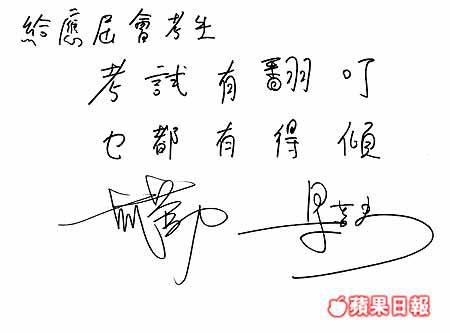 給應屆會考生
考試有翻叮
乜都有得傾
蘋果日報